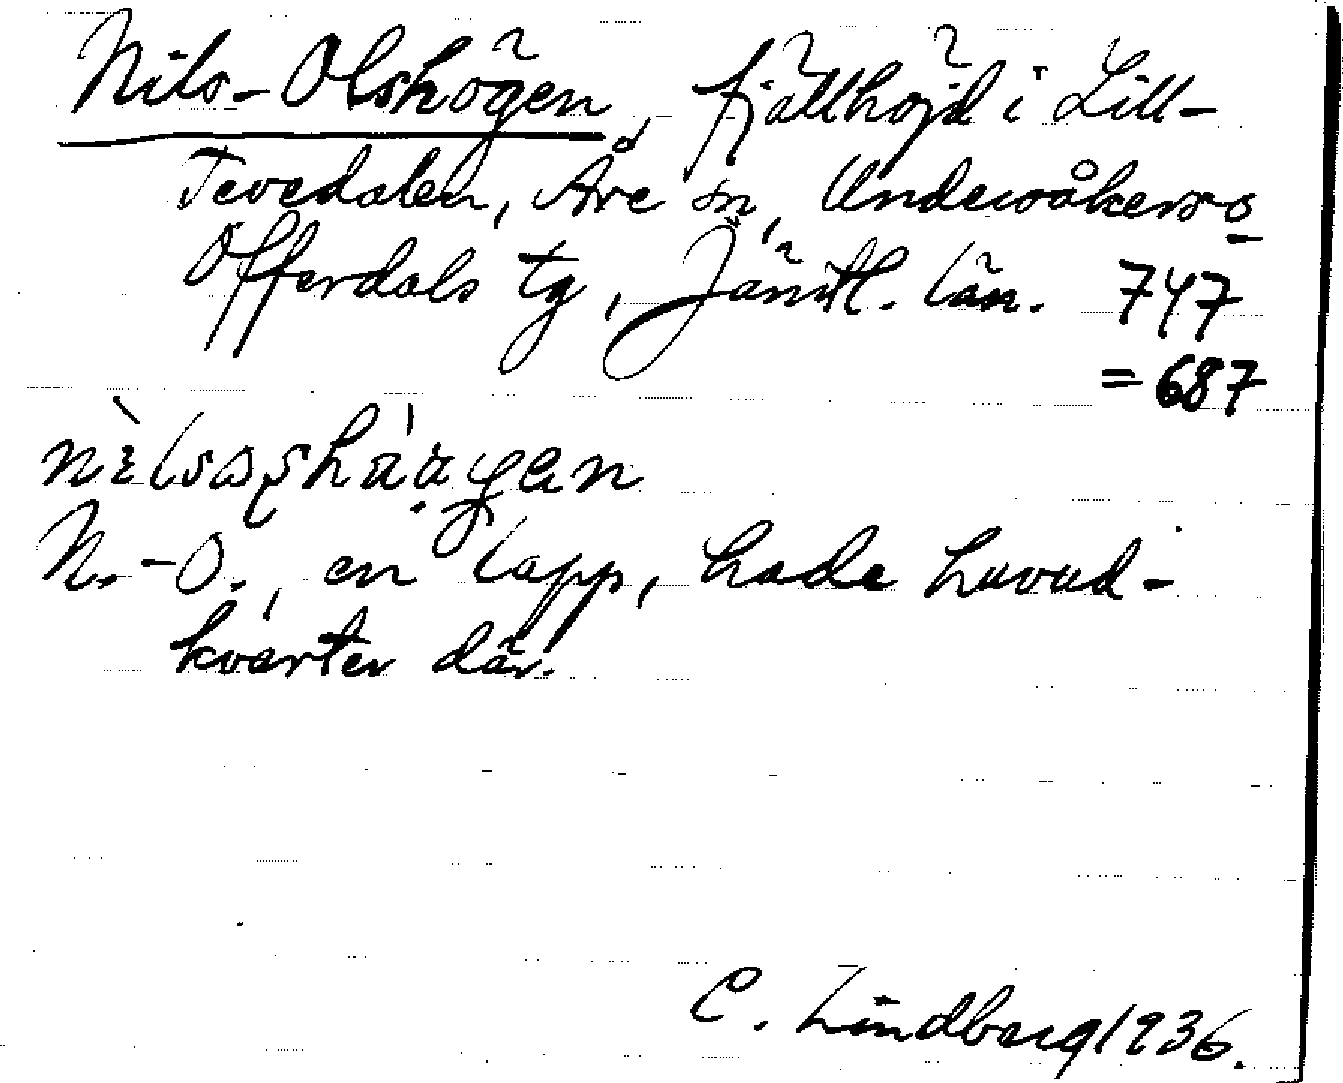 Nils-Olshögen, fjällhöjd i Lill-
Tevedalen, Åre sn, Undersåkers o
Offerdals tg, Jämtl. län. 747
= 687
N.-O., en lapp, hade huvud-
kvarter där.
C. Lindberg 1936.